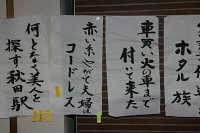 ホタル族
車買い火の車まで
付いて来た
赤い糸やがて夫婦は
コードレス
何となく美人を
探す秋田駅